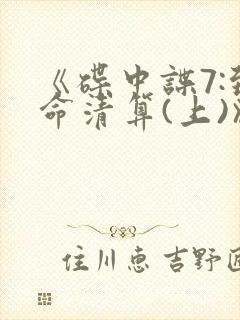 《碟中諜7:致
命清算(上)》
住川惠吉野匠